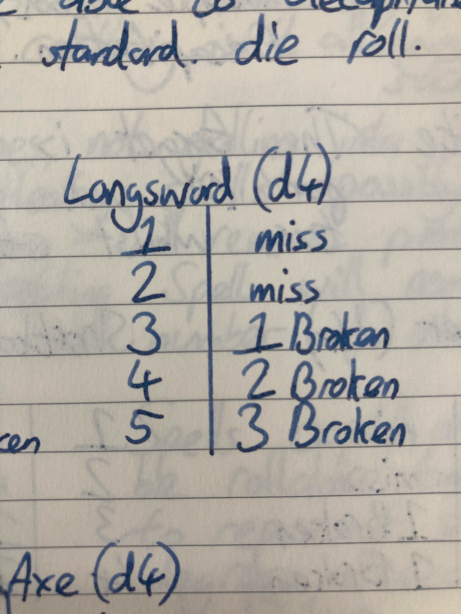 able to decapitate
standard. die roll.
Longsword (d4)
1 miss
2 miss
3 1 Broken
4 2 Broken
5 3 Broken
ken
Axe (d4)